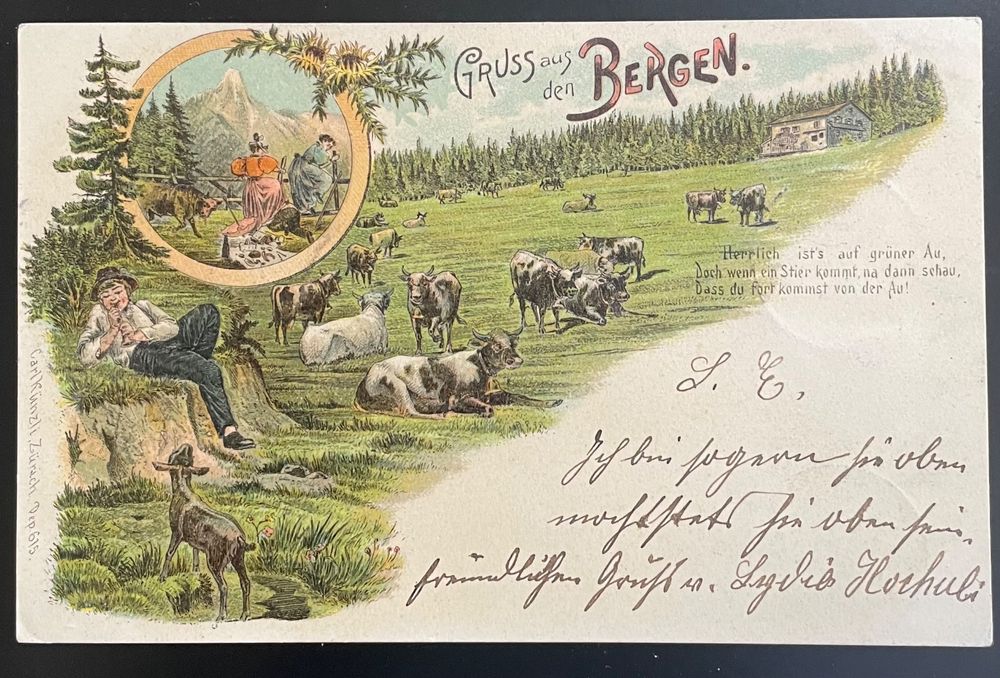 GRUSS aus
den BERGEN.
Herrlich ist's auf grüner Au,
Doch wenn ein Stier kommt, na dann schau,
Dass du fort kommst von der Au!
Carl Künzli, Zürich Dep. 615.
L. E.
Ich bin so gern hie oben
möcht stets hie oben sein.
freundlichen Gruss v. Lydia